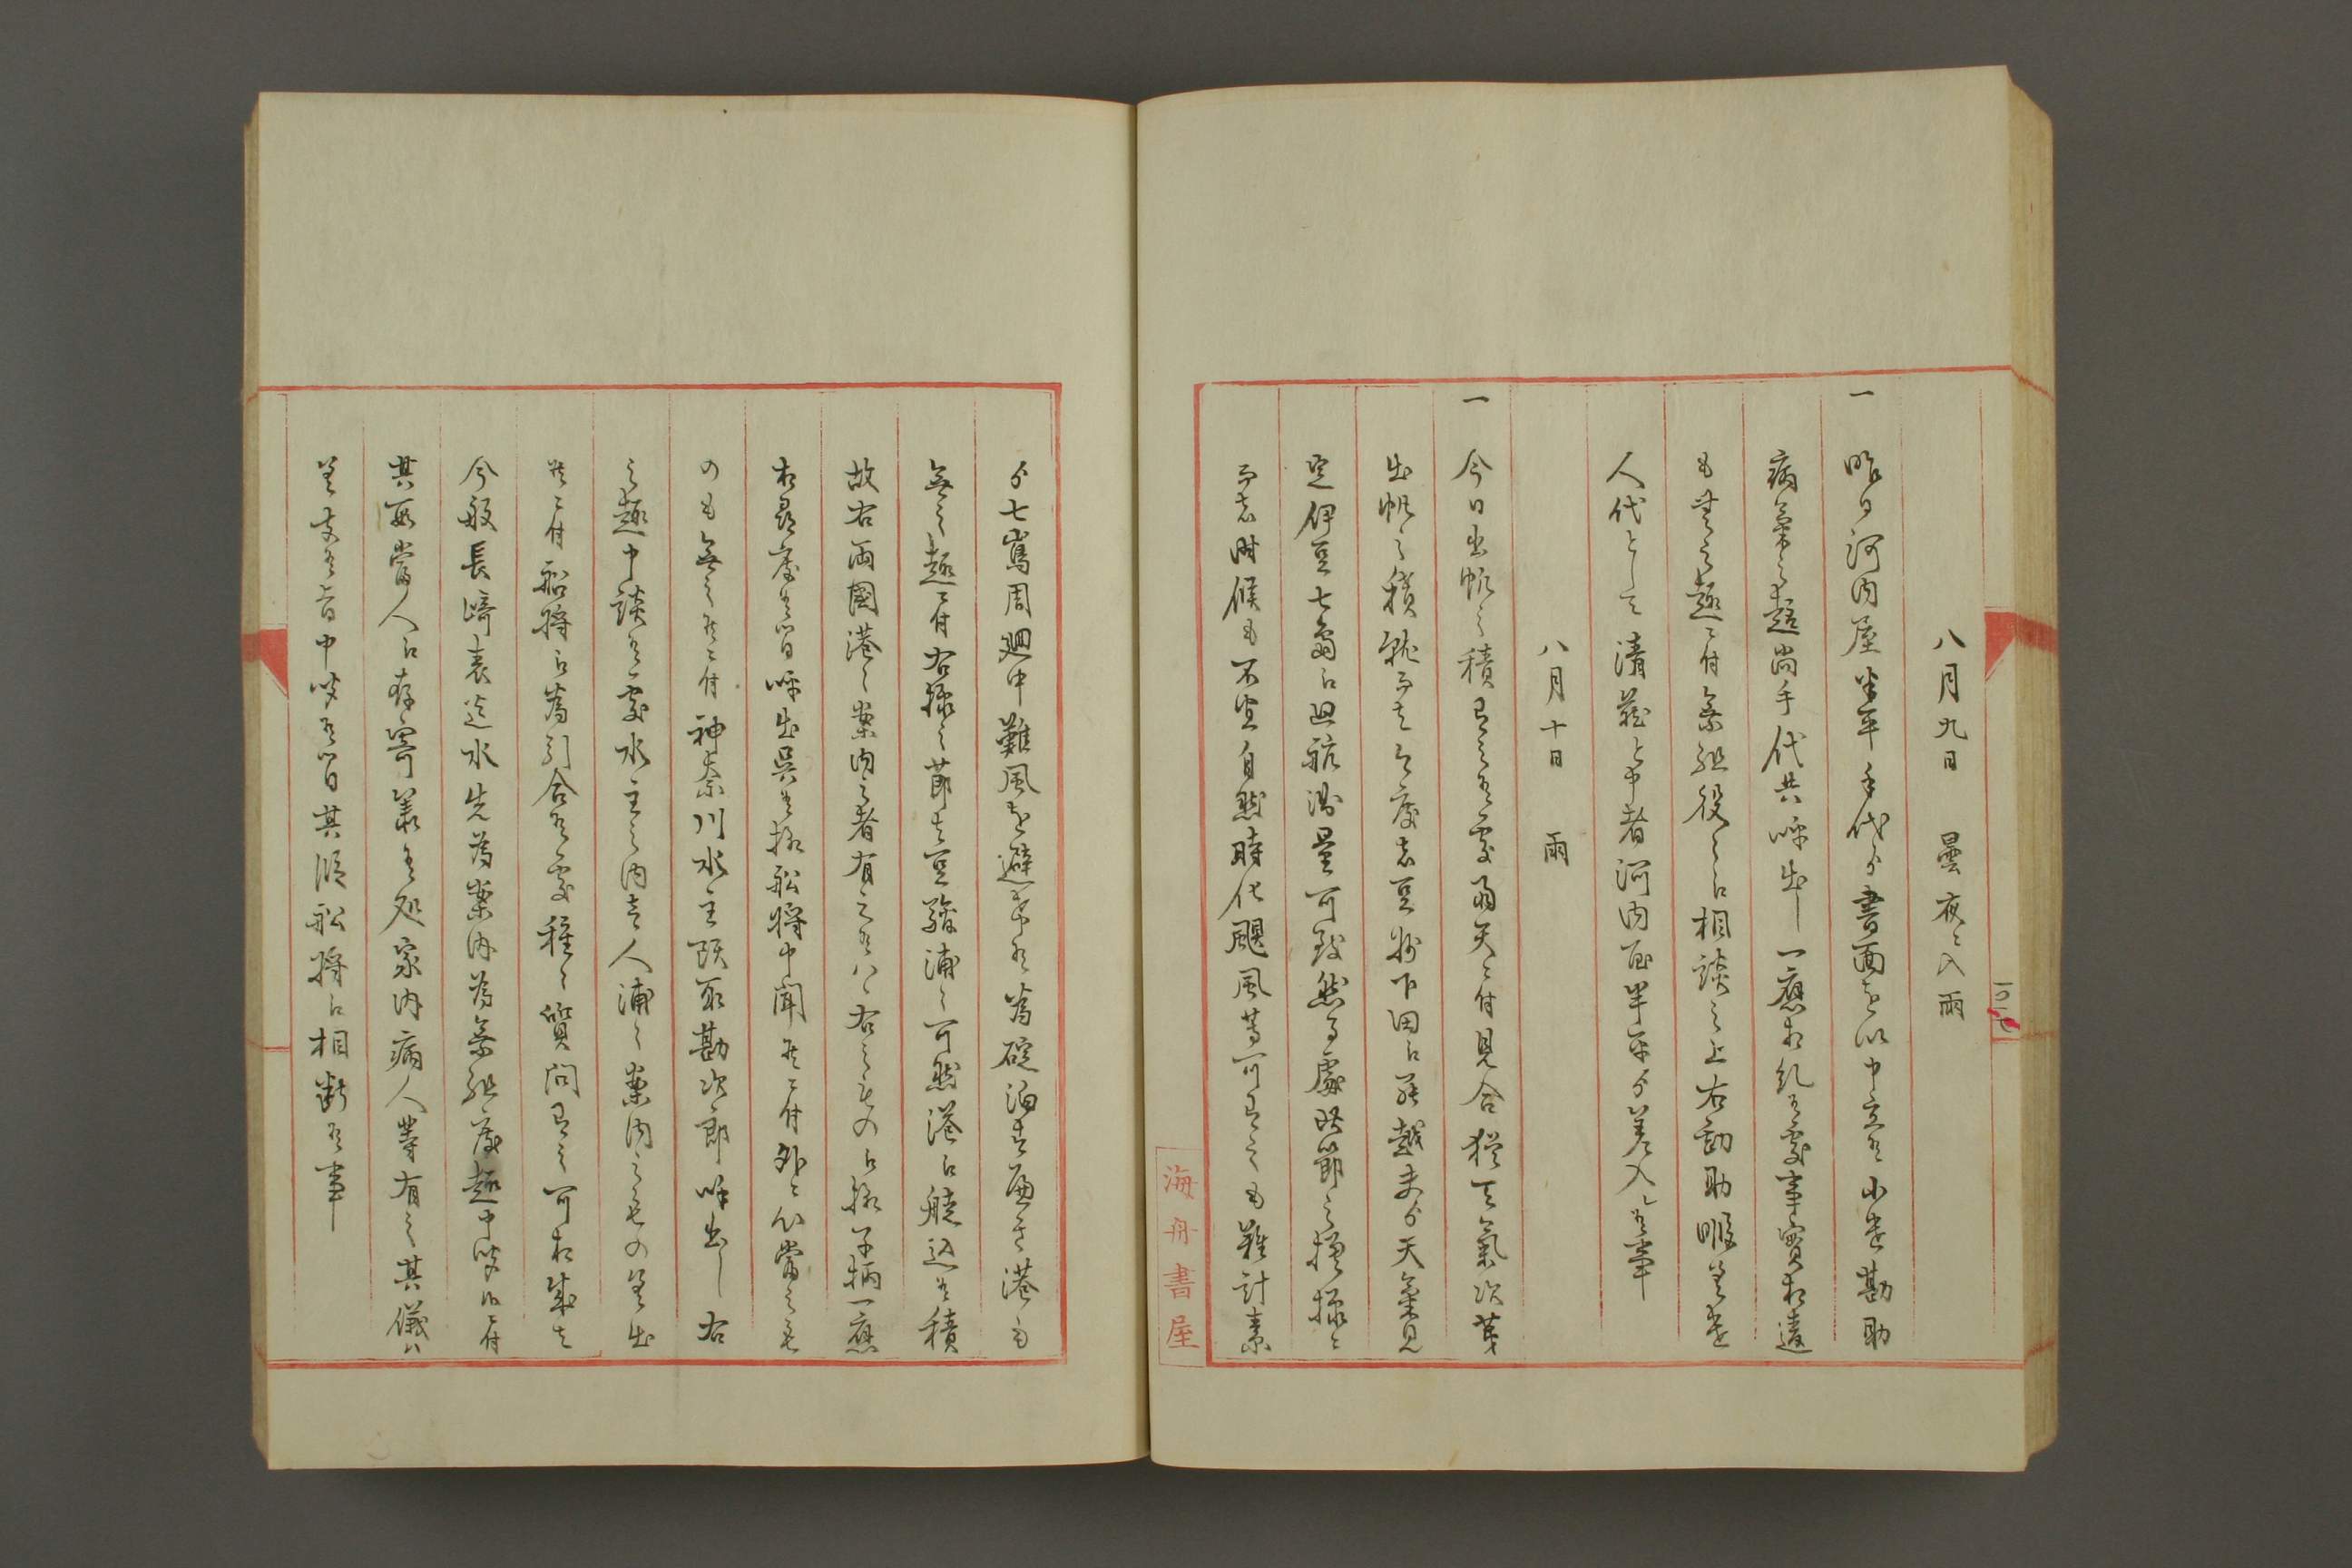 八月九日　曇夜ニ入雨
一　昨日河内屋半平手代ゟ書面を以申立候小遣勘助
病氣之趣尚手代共呼出し一應相糺候處事實相違
も無之趣ニ付乗組役々江相談之上右勘助暇差遣
人代として清蔵と申者河内屋半平ゟ差入候事
八月十日　雨
一　今日出帆之積有之候處雨天ニ付見合猶天氣次第
出帆之積就而者今度者豆州下田江罷越夫ゟ天氣見
定伊豆七島江廻航測量可致然る處此節之模様ニ
而者時候も不宜自然時化颶風等可有之も難計素
ゟ七嶌周廻中難風を避候為碇泊者勿論港も
無之趣ニ付右様之節者豆駿浦之可然港江乗込候積
故右両國港々案内之者有之候ハヽ右之もの江様子柄一應
相尋度候間呼出呉候様船将申聞候ニ付外ニ心當之も
のも無之候ニ付神奈川水主頭取勘次郎呼出し右
之趣申談候處水主之内者人浦々案内之もの差出
候ニ付船将江為引合候處種々質問有之可相成者
今般長崎表迄水先為案内為乗組度趣申聞候ニ付
其段當人江存寄承候処家内病人等有之其儀ハ
差支候旨申聞候間其段船将江相断候事
海舟書屋